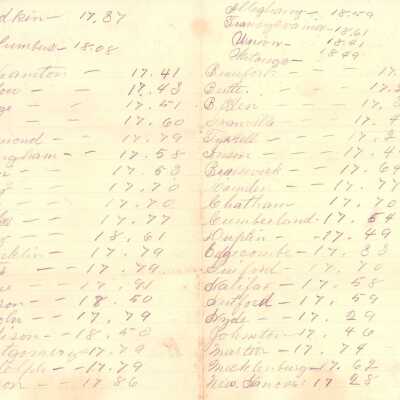 dkin - 17.87
lumbus - 18.08
hanton - 17.41
low - - 17.43
ge - - 17.51
- - 17.60
mond - - 17.79
ngham - - 17.58
- - 17.53
- - 17.70
- - 17.70
- - 17.77
- - 18.61
cklin - 17.79
- - 17.79
- - 17.91
son - - 18.50
oln - 17.79
dison - 18.50
tgomery - 17.79
olph - - 17.79
on - - 17.86
Alleghany - 18.59
Transylvania - 18.61
Union - 18.41
Watauga - 18.49
Beaufort - - 17.
Butte - - 17.3
Bden - - 17.3
Granville - 17.4
Tyrrell - - 17.3
- - 17.4
Brunswick - - 17.64
Camden - - 17.77
Chatham - 17.70
Cumberland - 17.54
Duplin - - 17.49
Edgecombe - 17.33
Guilford - 17.70
Halifax - 17.58
- 17.59
Hyde - 17.29
Johnston - 17.46
Martin - 17.74
Mecklenburg - 17.62
New Hanover 17 28